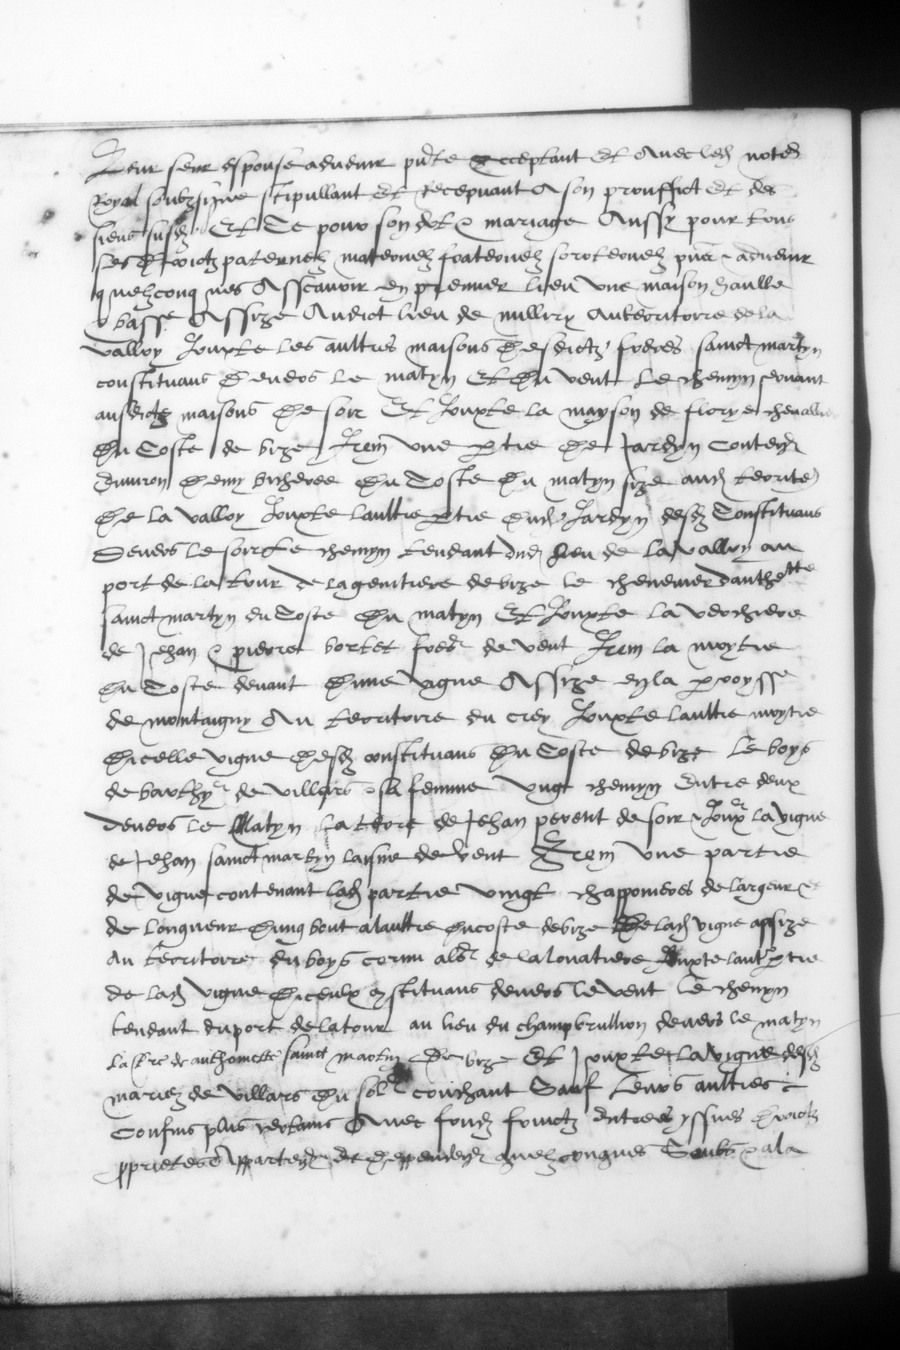 leur seur espouse advenir pnte acceptant et avec led notere
Royal soubzsigne stipullant et Recepvant a son prouffict et des
siens susd Et Ce pour son dot & mariage Aussy pour tous
ses droictz paternelz maternelz fraternelz sororternelz pnr & advenir
quelzconques Asscavoir en premier lieu une maison haulte
& basse Assize Audict lieu de millery au territoire de la
valloy Jouxte les aultres maisons desdictz freres sainct martyn
constituans devers le matyn Et du vent le chemyn servant
ausdictz maisons de soir Et Jouxte la mayson de florye
du Coste de bize Item une partie de Jardyn Conten
environ demy bicheree du Coste du matyn size aud territe
de la valloy Jouxte laultre partie dud Jardyn desd Constituans
devers le soir le chemyn tendant dud lieu de la valloy au
port de la tour de la genetiere de bize le danthette
sainct martyn du Coste du matyn Et Jouxte la verchiere
de Jehan & pierre bortet freres de vent Item la moytie
du Coste devant dune vigne Assize en la parroysse
de montaigny Au territoire du crey Jouxte laultre moytie
dicelle vigne desd constituans du Coste de bize le boys
de barthyr de villars & sa femme ung chemyn entre deux
devers le matyn la terre de Jehan perent de soir & Joux la vigne
de Jehan sainct martyn laisne de vent Item une partie
de vigne contenant lad partie vingt chapponieres de largeur &
de longueur dung bout a laultre du coste de bize de lad vigne assize
au territoire du boys cornu als de la lovatiere Jouxte laut partie
de lad vigne diceulx constituans devers le vent le chemyn
tendant du port de la tour au lieu du champ brullion devers le matyn
la tre de anthomette sainct martyn De bize Et Jouxte la vigne desd
mariez de villars du sol couchant Sauf leurs aultres
Confins plus certains Avec fondz fruictz entrees yssues droictz
pprietes Apparten et deppenden quelzconques Soubs & a la